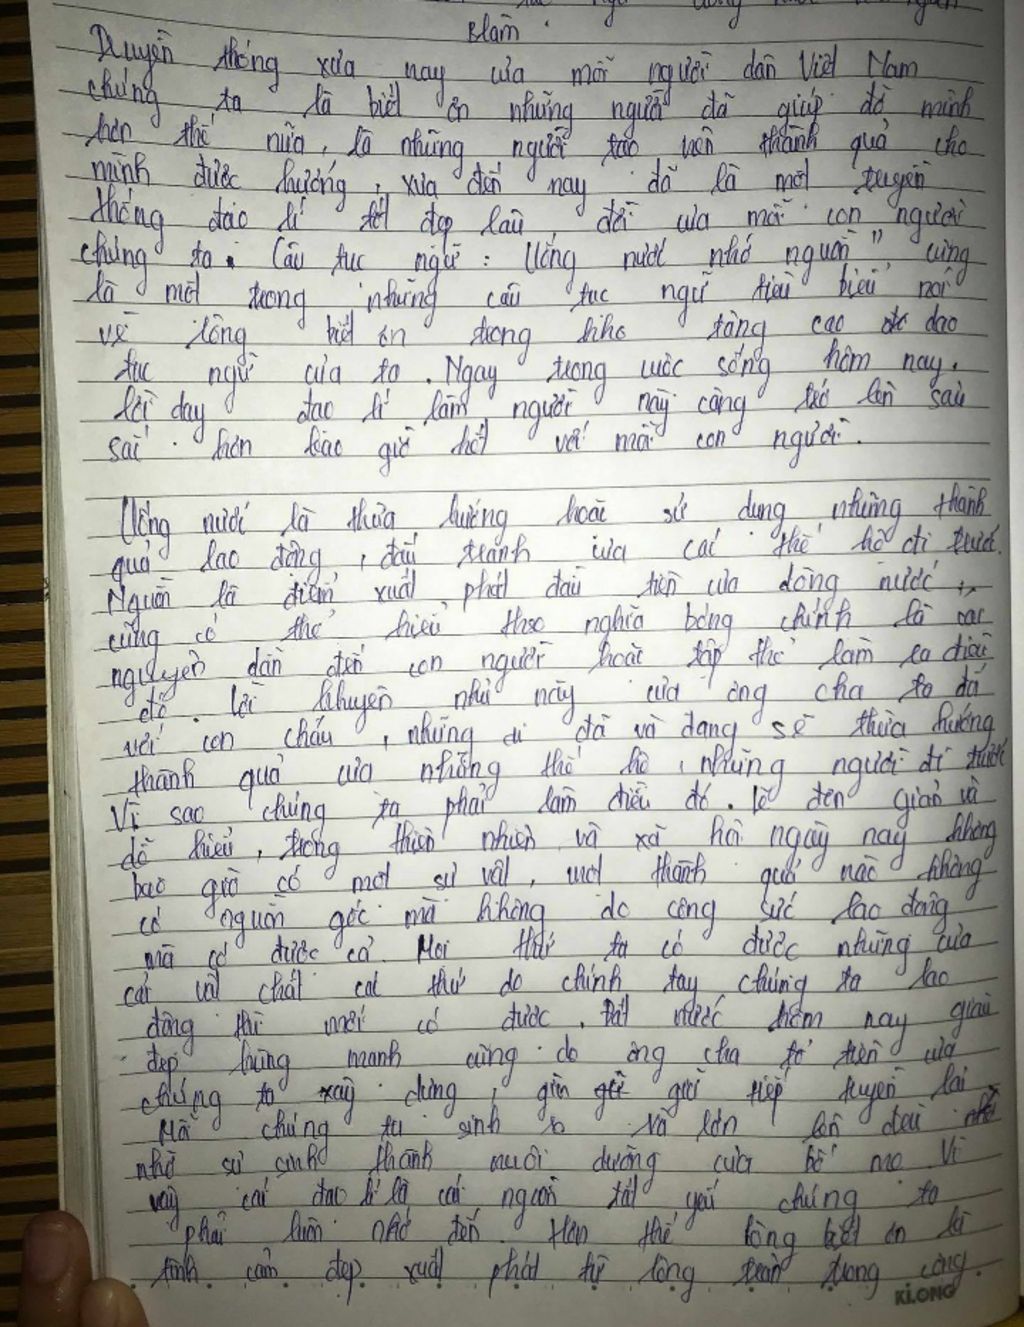 Blàm
Truyền thống xưa nay của mỗi người dân Việt Nam
chúng ta là biết ơn những người đã giúp đỡ mình
hơn thế nữa, là những người tạo nên thành quả cho
mình được hưởng, xưa đến nay đó là một truyền
thống đạo lí tốt đẹp lâu đời của mỗi con người
chúng ta. Câu tục ngữ: Uống nước nhớ nguồn" cũng
là một trong những câu tục ngữ tiêu biểu nói
về lòng biết ơn trong kho tàng cao dao
tục ngữ của ta. Ngay trong cuộc sống hôm nay,
lời dạy đạo lí làm người này càng trở lên sâu
sắc hơn bao giờ hết với mỗi con người.
Uống nước là thừa hưởng hoặc sử dụng những thành
quả lao động, đấu tranh của các thế hệ đi trước.
Nguồn là điểm xuất phát đầu tiên của dòng nước,
cũng có thể hiểu theo nghĩa bóng chính là
nguyên dẫn đến con người hoặc tập thể làm ra điều
đó. Lời khuyên nhủ này của ông cha ta đã
với con cháu, những đã và đang sẽ thừa hưởng
thành quả của những thế hệ, những người đi trước
Vì sao chúng ta phải làm điều đó. lẽ đơn giản và
dễ hiểu, trong thiên nhiên và xã hội ngày nay không
bao giờ có một sự vật, một thành quả nào không
có nguồn gốc mà không do công sức lao động
mà có được cả. Mọi thứ ta có được những của
cải vật chất các thứ do chính tay chúng ta lao
động thì mới có được. Đất nước hôm nay giàu
đẹp hùng mạnh cũng do ông cha tổ tiên của
chúng ta xây dựng, gìn giữ tiếp truyền lại
Mỗi chúng ta sinh ra và lớn lên đều
nhờ sự sinh thành nuôi dưỡng của bố mẹ Vì
vậy cái đạo lí là cái nguồn tất yếu chúng ta
phải luôn nhớ đến. Hơn thế lòng biết ơn là
tình cảm đẹp xuất phát từ lòng trân trọng công
KLONG